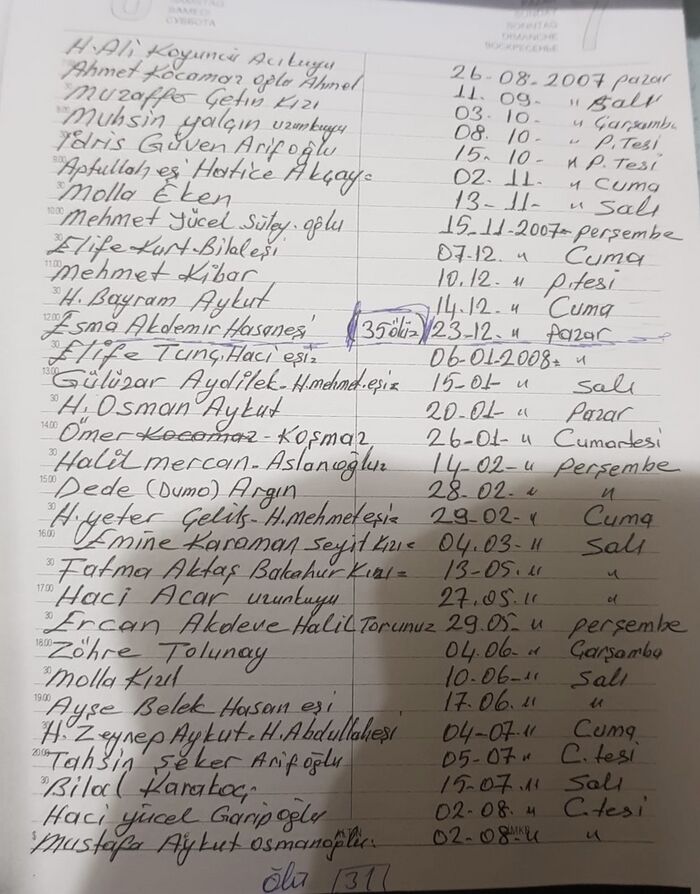 SAMEDI
СУББОТА
SONNTAG
DIMANCHE
ВОСКРЕСЕНЬЕ
H. Ali Koyuncu Acıkuyu 26-08-2007 pazar
Ahmet Kocamaz oğlu Ahmet 11. 09- " Salı
Muzaffer Çetin Kızı 03. 10- " Çarşamba
Muhsin yalçın uzunkuyu 08. 10- " P. Tesi
İdris Güven Arifoğlu 15. 10- " P. Tesi
9.00 Aptullah eşi Hatice Akçay= 02. 11. " Cuma
30 Molla Eken 13-11- " Salı
10.00 Mehmet Yücel Süley. oğlu 15-11-2007= perşembe
30 Elife Kurt-Bilaleşi 07-12. " Cuma
11.00 Mehmet Kibar 10.12. " P.tesi
30 H. Bayram Aykut 14.12. " Cuma
12.00 Esma Akdemir Hasaneşi (35 ölü) 23-12. " Pazar
30 Elife Tunç Haci eşi= 06-01-2008= "
13.00 Gülüzar Aydilek-H.mehmet.eşi= 15-01- " Salı
30 H. Osman Aykut 20-01- " Pazar
14.00 Ömer Kocamaz - Koşmaz 26-01- " Cumartesi
30 Halil mercan-Aslanoğlu= 14-02-" perşembe
15.00 Dede (Dumo) Argın 28-02. " "
30 H. yeter Çelik-H.mehmeteşi= 29-02- " Cuma
16.00 Emine Karaman Seyit Kızı= 04.03-" Salı
30 Fatma Aktaş Bakahur Kızı= 13-05. " "
17.00 Haci Acar uzunkuyu 27.05. " "
30 Ercan Akdeve Halil Torunu= 29.05- " perşembe
18.00 Zöhre Tolunay 04.06- " Çarşamba
30 Molla Kızıl 10.06-" Salı
19.00 Ayşe Belek Hasan eşi 17.06. " "
30 H. Zeynep Aykut-H.Abdullaheşi 04-07." Cuma
20.00 Tahsin Şeker Arifoğlu 05-07" C. tesi
30 Bilal Karakoç 15-07." Salı
Haci yücel Garipoğlu 02-08. " C.tesi
Mustafa Aykut osmanoğlu. 02-08-" "
ölü 31